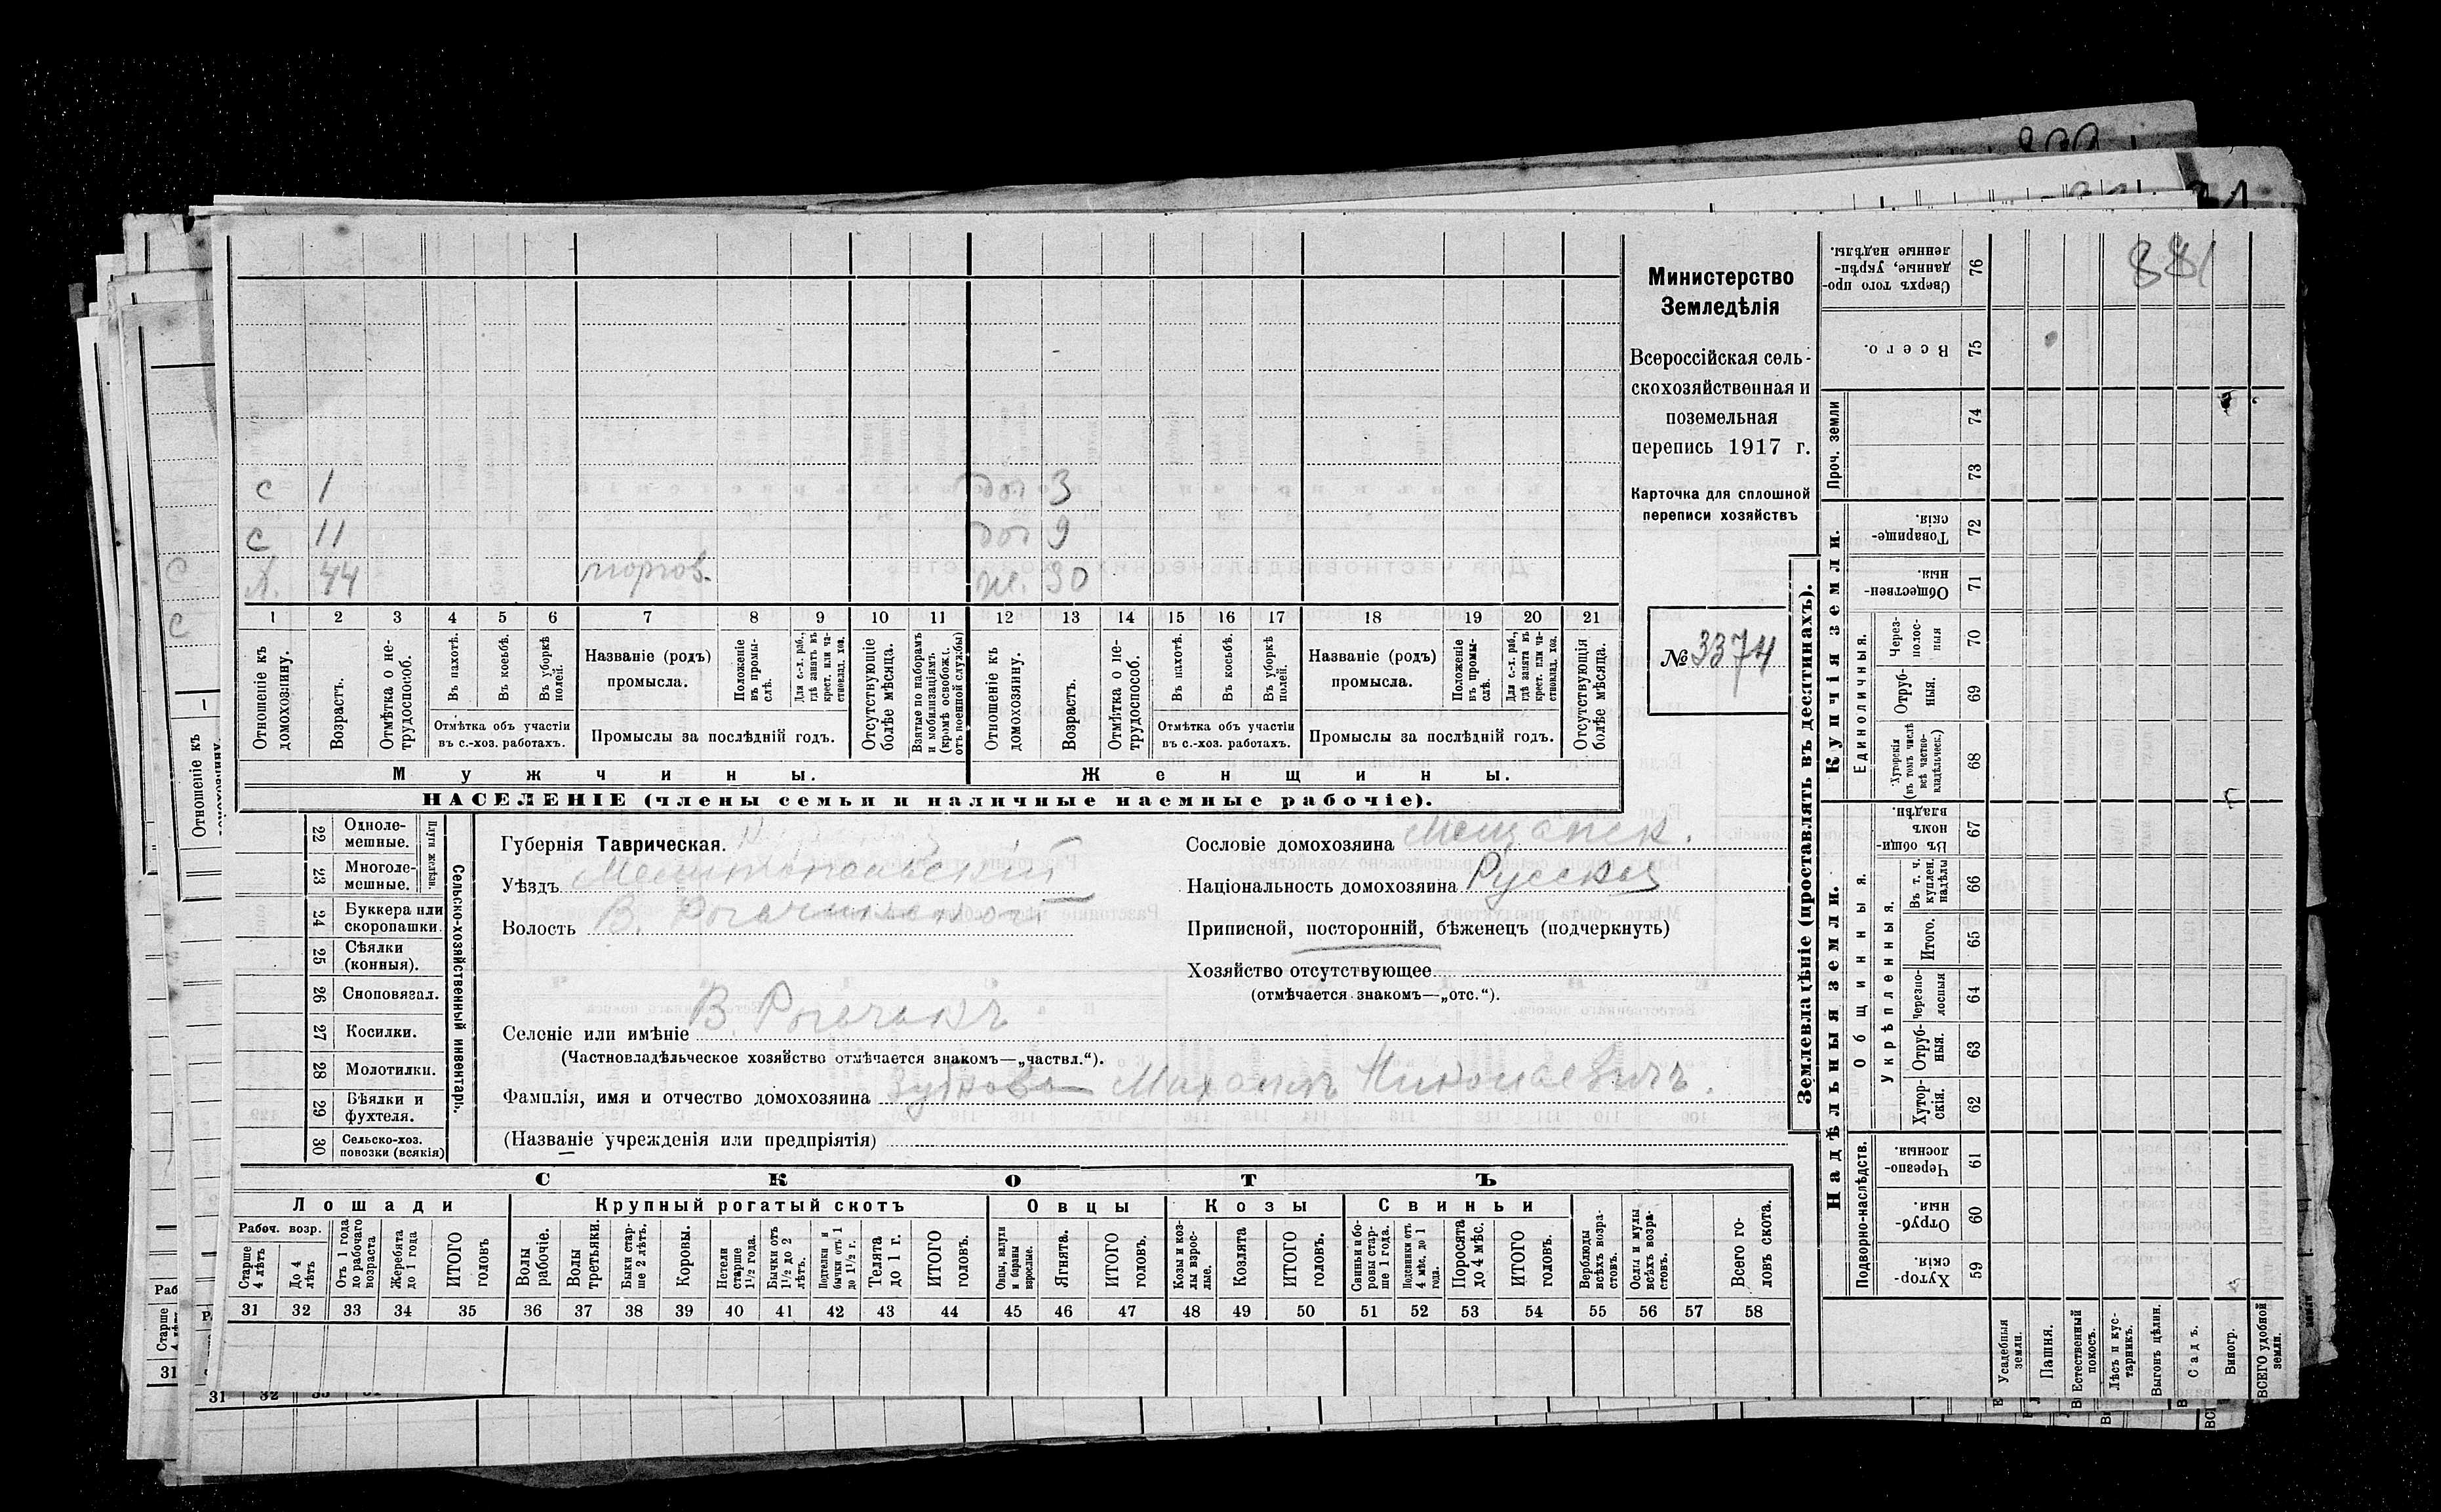 881
Министерство
Земледѣлія
Всероссійская сель-
скохозяйственная и
поземельная
перепись 1917 г.
Карточка для сплошной
переписи хозяйствъ
№ 3374
с 1 дот 3
с 11 дот 9
44 торгов. ж. 30
1 2 3 4 5 6 7 8 9 10 11 12 13 14 15 16 17 18 19 20 21
Отношеніе къ домохозяину.
Возрастъ.
Отмѣтка о не-трудоспособ.
Въ пахотѣ.
Въ косьбѣ.
Въ уборкѣ полей.
Отмѣтка объ участіи
въ с.-хоз. работахъ.
Названіе (родъ)
промысла.
Положеніе въ промы-слѣ.
Для с.-х. раб., гдѣ занятъ въ крест. или ча-ствовлад. хоз.
Промыслы за послѣдній годъ.
Отсутствующіе болѣе мѣсяца.
Взятые по наборамъ и мобилизаціямъ (кромѣ освобожд. отъ военной службы)
Отношеніе къ домохозяину.
Возрастъ.
Отмѣтка о не-трудоспособ.
Въ пахотѣ.
Въ косьбѣ.
Въ уборкѣ полей.
Отмѣтка объ участіи
въ с.-хоз. работахъ.
Названіе (родъ)
промысла.
Положеніе въ промы-слѣ.
Для с.-х. раб., гдѣ занята въ крест. или ча-ствовлад. хоз.
Промыслы за послѣдній годъ.
Отсутствующія болѣе мѣсяца.
Мужчины. Женщины.
НАСЕЛЕНІЕ (члены семьи и наличные наемные рабочіе).
22 Одноле-мешные.
23 Многоле-мешные.
Плуги желѣзн.
24 Буккера или скоропашки.
25 Сѣялки (конныя).
26 Сноповязал.
27 Косилки.
28 Молотилки.
29 Вѣялки и фухтеля.
30 Сельско-хоз. повозки (всякія)
Сельско-хозяйственный инвентарь.
Губернія Таврическая.
Уѣздъ Мелитопольскій
Волость В. Рогачикской
Селеніе или имѣніе В. Рогачикъ
(Частновладѣльческое хозяйство отмѣчается знакомъ—„частвл.“).
Фамилія, имя и отчество домохозяина Зубково Михаилъ Николаевичъ.
(Названіе учрежденія или предпріятія)
Сословіе домохозяина Мещанск.
Національность домохозяина Русская
Приписной, посторонній, бѣженецъ (подчеркнуть)
Хозяйство отсутствующее
(отмѣчается знакомъ—„отс.“).
СКОТЪ
Лошади Крупный рогатый скотъ Овцы Козы Свиньи
Рабоч. возр.
Старше 4 лѣтъ
До 4 лѣтъ
Отъ 1 года до рабочаго возраста
Жеребята до 1 года
ИТОГО головъ
Волы рабочіе.
Волы третьяки.
Быки стар-ше 2 лѣтъ.
Коровы.
Нетели старше 1½ года.
Бычки отъ 1½ до 2 лѣтъ.
Подтелки и бычки отъ 1 до 1½ г.
Телята до 1 г.
ИТОГО головъ.
Овцы, валухи и бараны взрослые.
Ягнята.
ИТОГО головъ.
Козы и коз-лы взрос-лые.
Козлята
ИТОГО головъ.
Свиньи и бо-ровы стар-ше 1 года.
Подсвинки отъ 4 мѣс. до 1 года.
Поросята до 4 мѣс.
ИТОГО головъ.
Верблюды всѣхъ возра-стовъ.
Ослы и мулы всѣхъ возра-стовъ.
Всего го-ловъ скота.
31 32 33 34 35 36 37 38 39 40 41 42 43 44 45 46 47 48 49 50 51 52 53 54 55 56 57 58
Землевладѣніе (проставлять въ десятинахъ).
Купчія земли.
Надѣльныя земли.
Сверхъ того про-данные, укрѣп-ленные надѣлы. 76
Всего. 75
Проч. земли 74
73
Товарище-скія. 72
Обществен-ныя. 71
Единоличныя.
Через-полос-ныя 70
Отруб-ныя. 69
Хуторскія (въ томъ числѣ всѣ частно-владѣльческ.) 68
Въ общи-номъ владѣн. 67
Общинныя.
Укрѣпленныя.
Въ т. ч. куплен. надѣлы 66
Итого. 65
Черезпо-лосныя 64
Отруб-ныя. 63
Хутор-скія. 62
Подворно-наслѣдств.
Черезпо-лосныя. 61
Отруб-ныя. 60
Хутор-скія. 59
Усадебныя земли.
Пашня.
Естественный покосъ.
Лѣсъ и кус-тарникъ.
Выгонъ цѣлин.
Садъ.
Виногр.
ВСЕГО удобной земли.